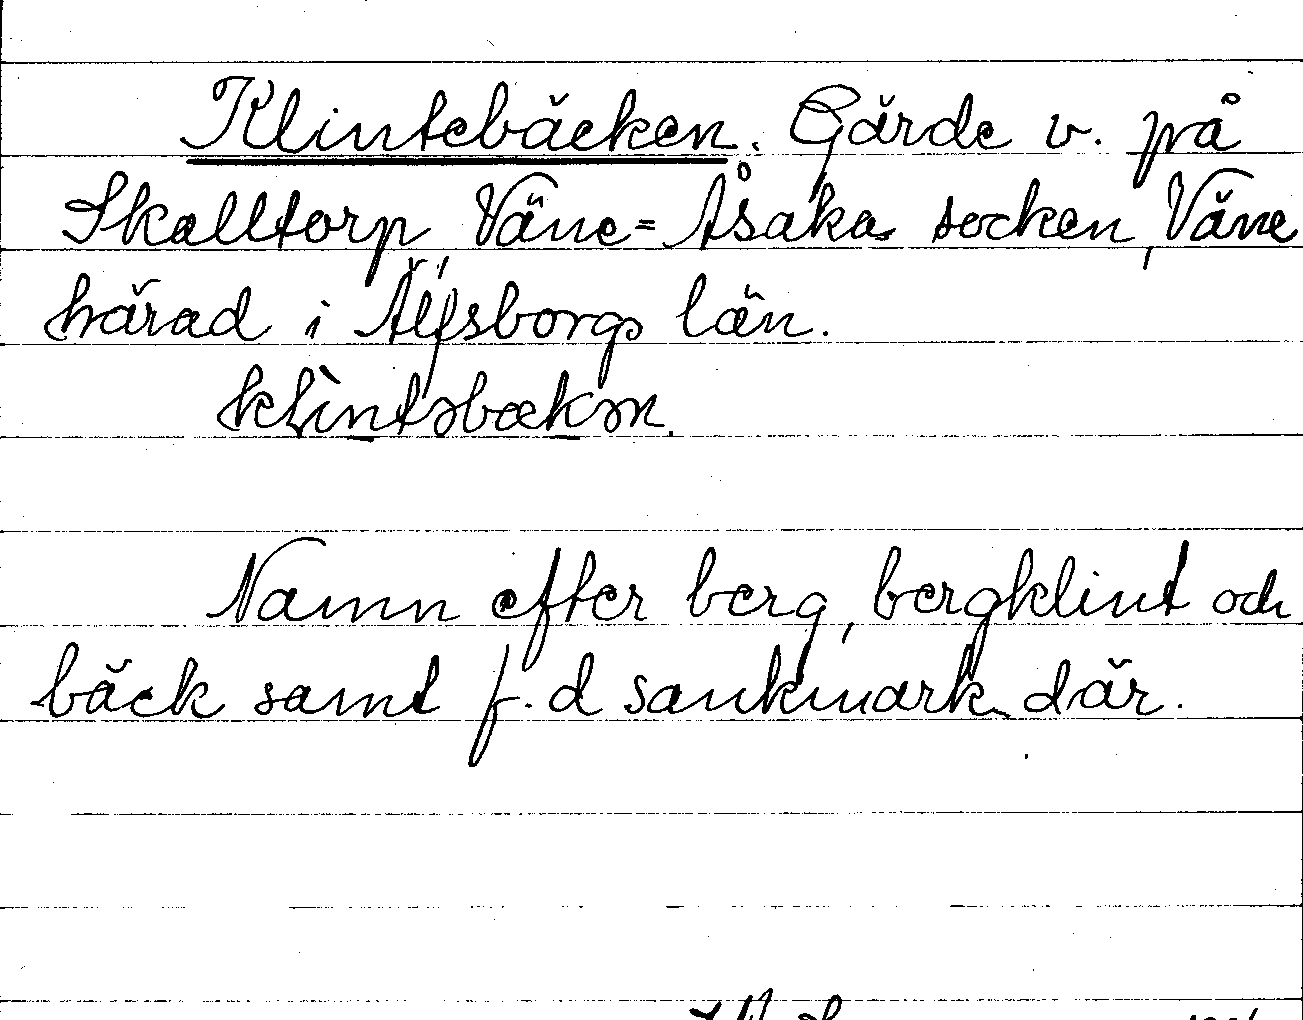 Klintebäcken. Gärde v. på
Skalltorp, Väne=Åsaka socken, Väne
härad i Älfsborgs län.
klìntəbækən.
Namn efter berg, bergklint och
bäck samt f.d sankmark där.